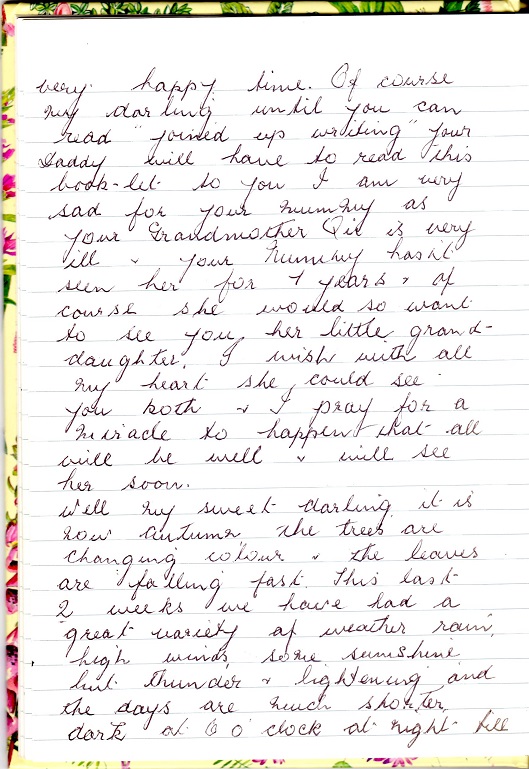 very happy time. Of course
my darling until you can
read "joined up writing" your
Daddy will have to read this
book-let to you I am very
sad for your mummy as
your Grandmother is very
ill & your Mummy hasn't
seen her for 7 years & of
course she would so want
to see you, her little grand-
daughter. I wish with all
my heart she could see
you both & I pray for a
miracle to happen that all
will be well & will see
her soon.
Well my sweet darling it is
now autumn, the trees are
changing colour & the leaves
are falling fast. This last
2 weeks we have had a
great variety of weather rain,
high winds, some sunshine
but thunder & lightening and
the days are much shorter,
dark at 6 o'clock at night till